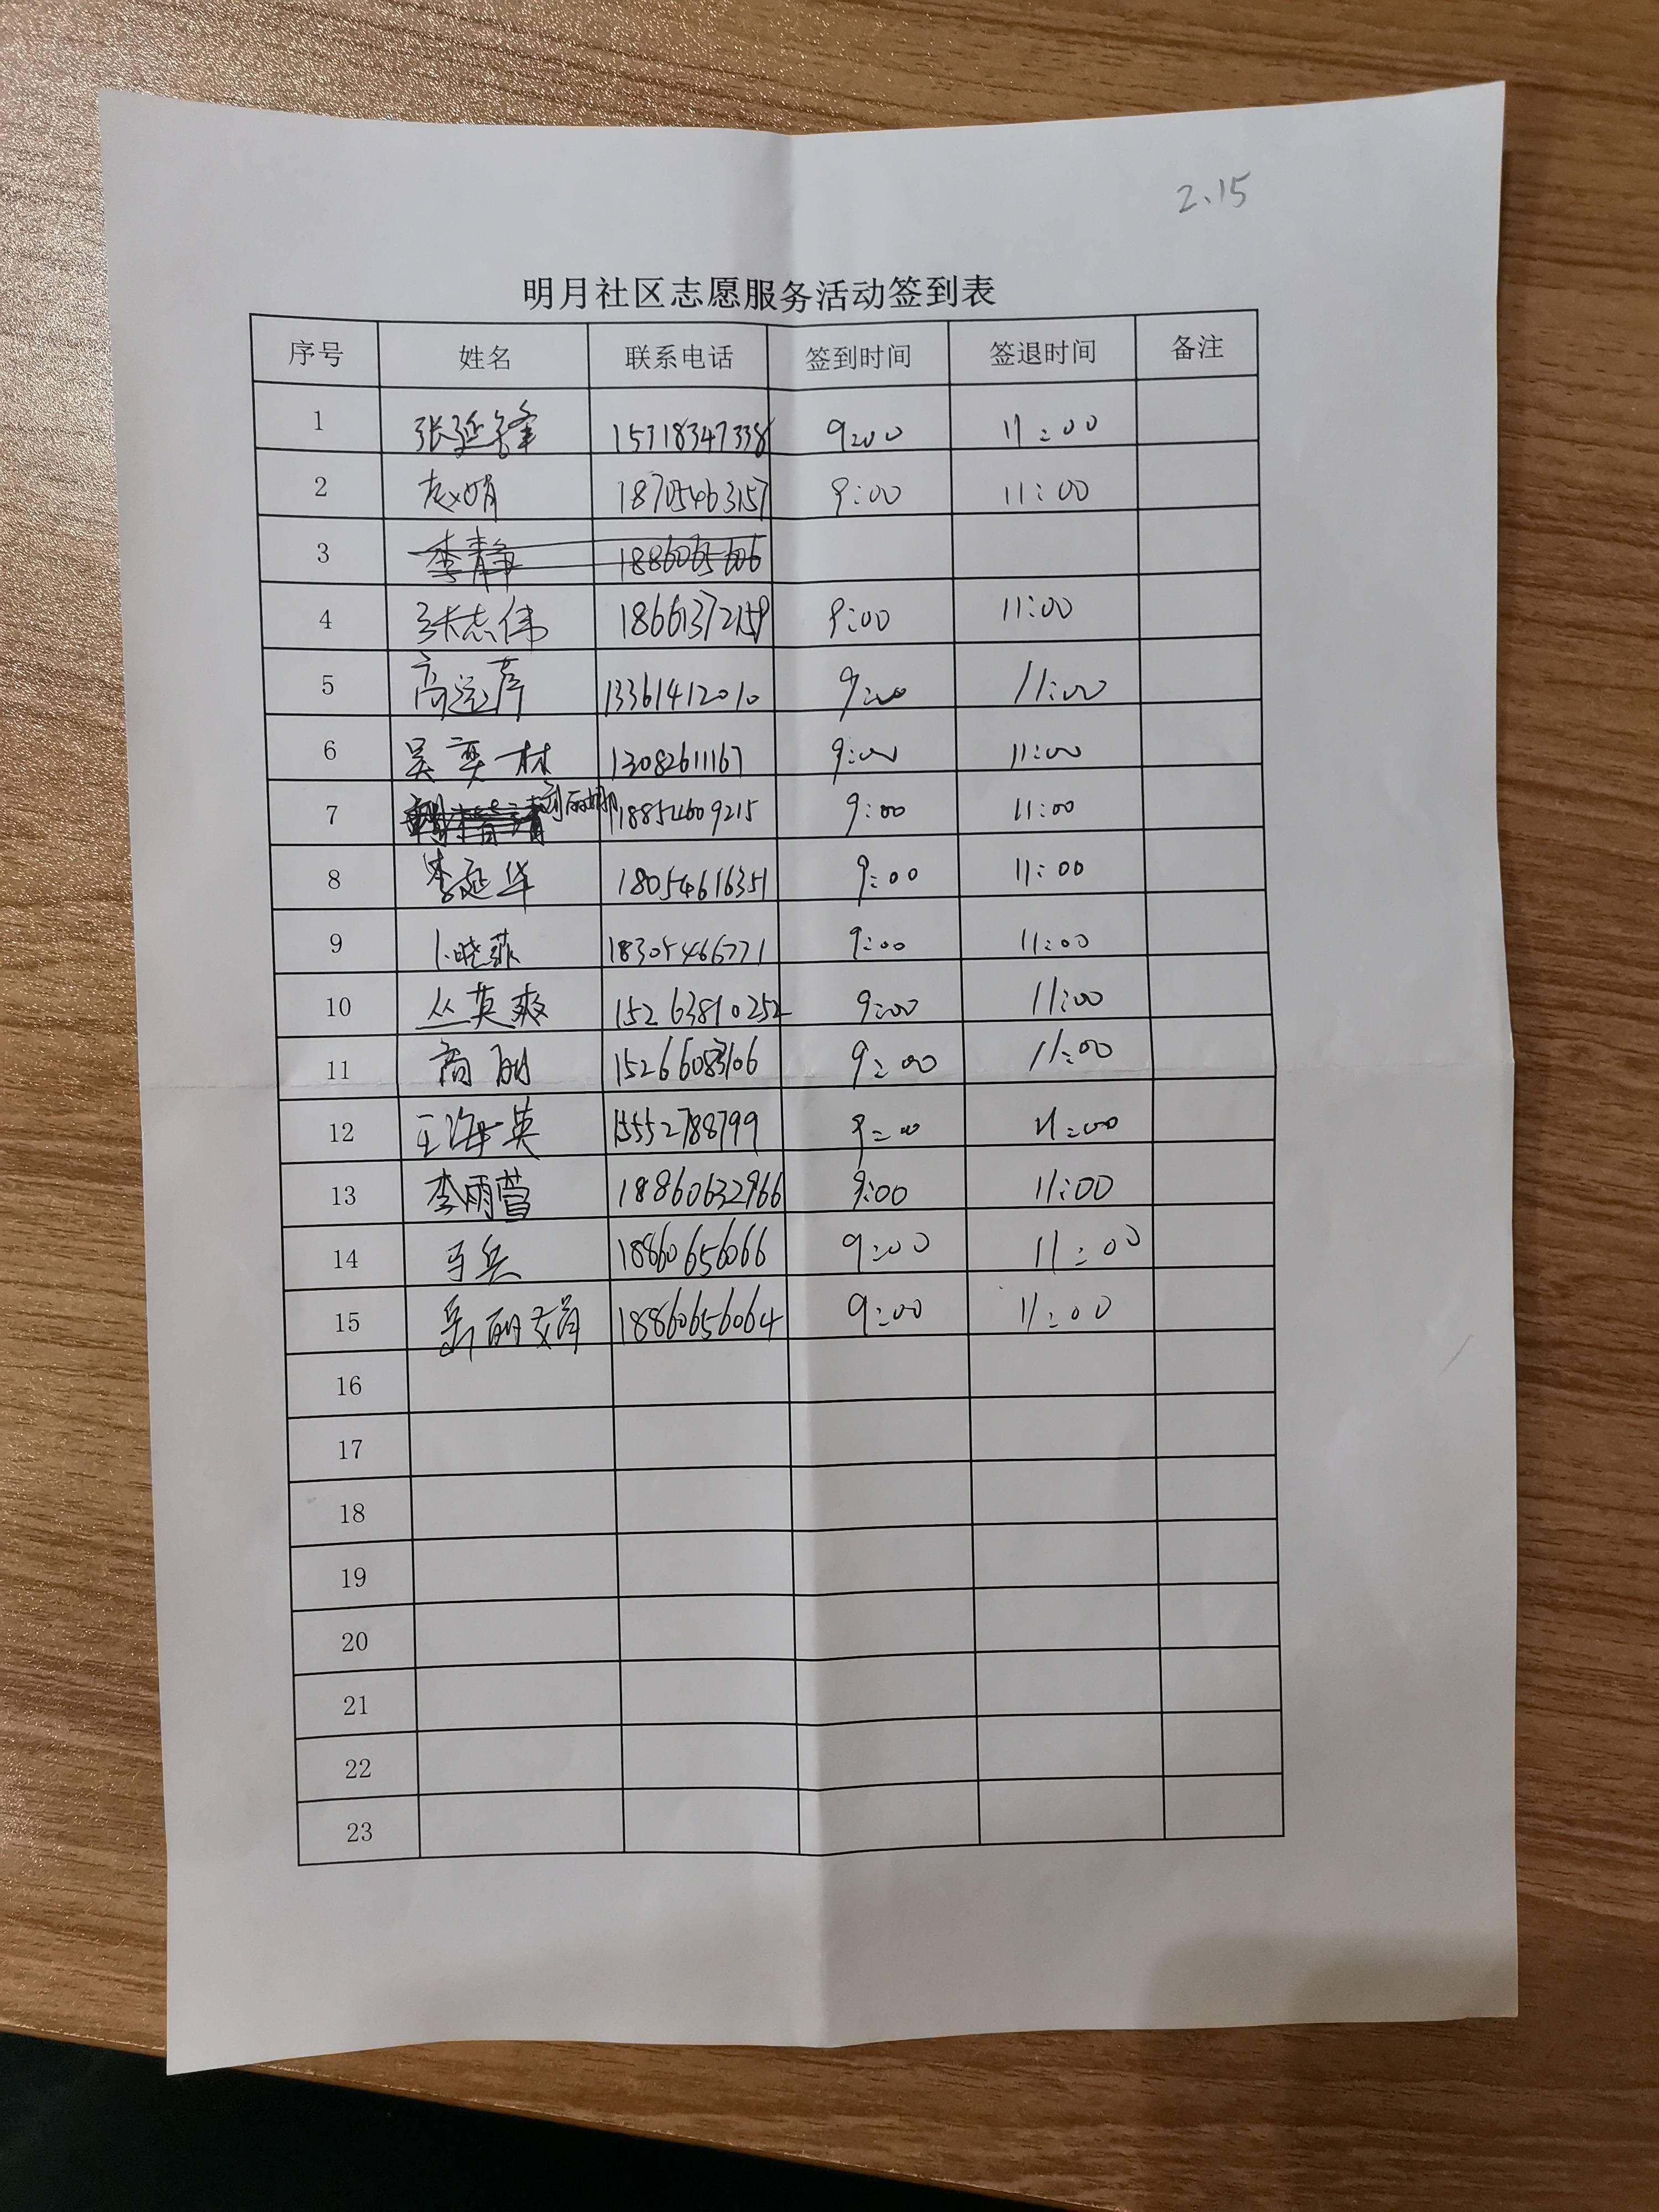 2.15
明月社区志愿服务活动签到表
序号 姓名 联系电话 签到时间 签退时间 备注
1 张延锋 15318347338 9:00 11:00
2 赵娟 18705463157 9:00 11:00
3 李静
4 张志伟 18661372159 9:00 11:00
5 高运芹 13361412010 9:00 11:00
6 吴奕林 13082611167 9:00 11:00
7 刘丽娜 18854609215 9:00 11:00
8 李延华 18054616351 9:00 11:00
9 卜晓菲 18305466771 9:00 11:00
10 丛英爽 15263810252 9:00 11:00
11 商丽 9:00 11:00
12 王海英 15552788799 9:00 11:00
13 李雨萱 18860632966 9:00 11:00
14 马兵 18860656066 9:00 11:00
15 岳丽娟 18860656064 9:00 11:00
16
17
18
19
20
21
22
23